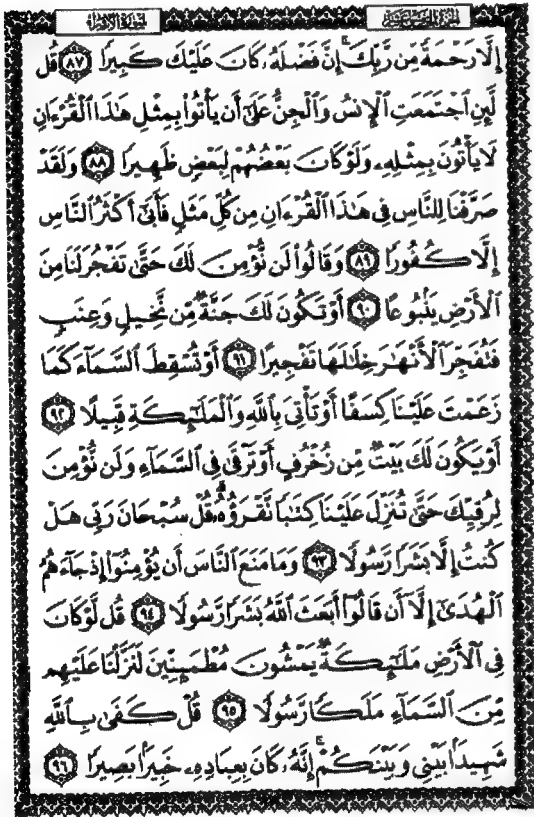 سورة الإسراء الجزء الخامس عشر
إِلَّا رَحْمَةً مِّن رَّبِّكَ ۚ إِنَّ فَضْلَهُۥ كَانَ عَلَيْكَ كَبِيرًا ٨٧ قُل
لَّئِنِ ٱجْتَمَعَتِ ٱلْإِنسُ وَٱلْجِنُّ عَلَىٰٓ أَن يَأْتُوا۟ بِمِثْلِ هَـٰذَا ٱلْقُرْءَانِ
لَا يَأْتُونَ بِمِثْلِهِۦ وَلَوْ كَانَ بَعْضُهُمْ لِبَعْضٍ ظَهِيرًا ٨٨ وَلَقَدْ
صَرَّفْنَا لِلنَّاسِ فِى هَـٰذَا ٱلْقُرْءَانِ مِن كُلِّ مَثَلٍ فَأَبَىٰٓ أَكْثَرُ ٱلنَّاسِ
إِلَّا كُفُورًا ٨٩ وَقَالُوا۟ لَن نُّؤْمِنَ لَكَ حَتَّىٰ تَفْجُرَ لَنَا مِنَ
ٱلْأَرْضِ يَنۢبُوعًا ٩٠ أَوْ تَكُونَ لَكَ جَنَّةٌ مِّن نَّخِيلٍ وَعِنَبٍ
فَتُفَجِّرَ ٱلْأَنْهَـٰرَ خِلَـٰلَهَا تَفْجِيرًا ٩١ أَوْ تُسْقِطَ ٱلسَّمَآءَ كَمَا
زَعَمْتَ عَلَيْنَا كِسَفًا أَوْ تَأْتِىَ بِٱللَّهِ وَٱلْمَلَـٰٓئِكَةِ قَبِيلًا ٩٢
أَوْ يَكُونَ لَكَ بَيْتٌ مِّن زُخْرُفٍ أَوْ تَرْقَىٰ فِى ٱلسَّمَآءِ وَلَن نُّؤْمِنَ
لِرُقِيِّكَ حَتَّىٰ تُنَزِّلَ عَلَيْنَا كِتَـٰبًا نَّقْرَؤُهُۥ ۗ قُلْ سُبْحَانَ رَبِّى هَلْ
كُنتُ إِلَّا بَشَرًا رَّسُولًا ٩٣ وَمَا مَنَعَ ٱلنَّاسَ أَن يُؤْمِنُوٓا۟ إِذْ جَآءَهُمُ
ٱلْهُدَىٰٓ إِلَّآ أَن قَالُوٓا۟ أَبَعَثَ ٱللَّهُ بَشَرًا رَّسُولًا ٩٤ قُل لَّوْ كَانَ
فِى ٱلْأَرْضِ مَلَـٰٓئِكَةٌ يَمْشُونَ مُطْمَئِنِّينَ لَنَزَّلْنَا عَلَيْهِم
مِّنَ ٱلسَّمَآءِ مَلَكًا رَّسُولًا ٩٥ قُلْ كَفَىٰ بِٱللَّهِ
شَهِيدًۢا بَيْنِى وَبَيْنَكُمْ ۚ إِنَّهُۥ كَانَ بِعِبَادِهِۦ خَبِيرًۢا بَصِيرًا ٩٦